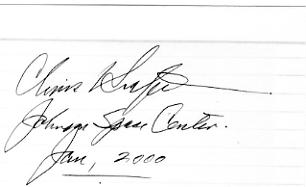 Chris Kraft
Johnson Space Center.
Jan, 2000